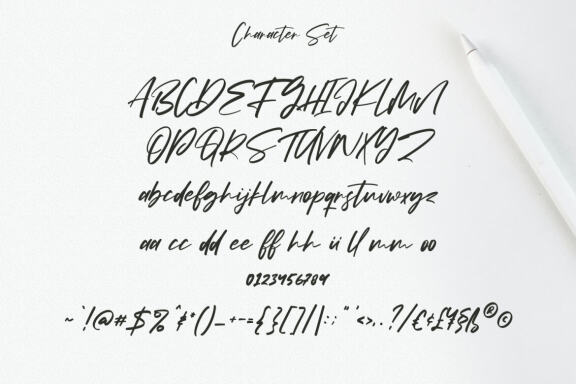 Character Set
ABCDEFGHIJKLMN
OPQRSTUVWXYZ
abcdefghijklmnopqrstuvwxyz
aa cc dd ee ff hh ii ll mm oo
0123456789
~`!@#$%^&*()_+-={}[]|/|:;"'<>,.?/€¢£¥§ß®©